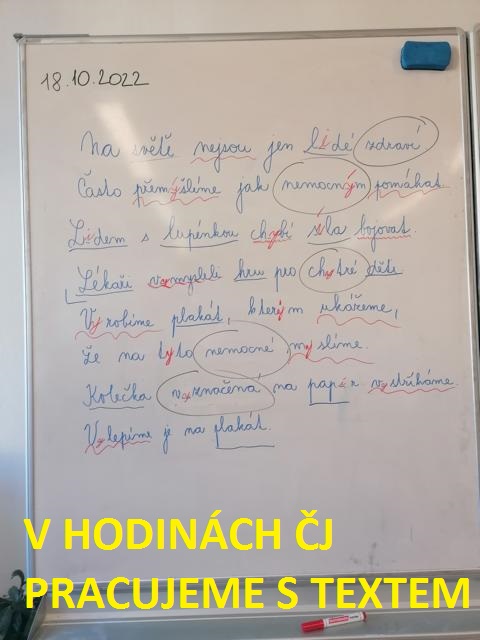 18.10.2022
Na světě nejsou jen lidé zdraví.
Často přemýšlíme jak nemocným pomáhat.
Lidem s lupénkou chybí síla bojovat.
Lékaři vymysleli hru pro chytré děti
Vyrobíme plakát, kterým ukážeme,
že na tyto nemocné myslíme.
Kolečka vyznačená na papír vystříháme.
Vylepíme je na plakát.
V HODINÁCH ČJ
PRACUJEME S TEXTEM